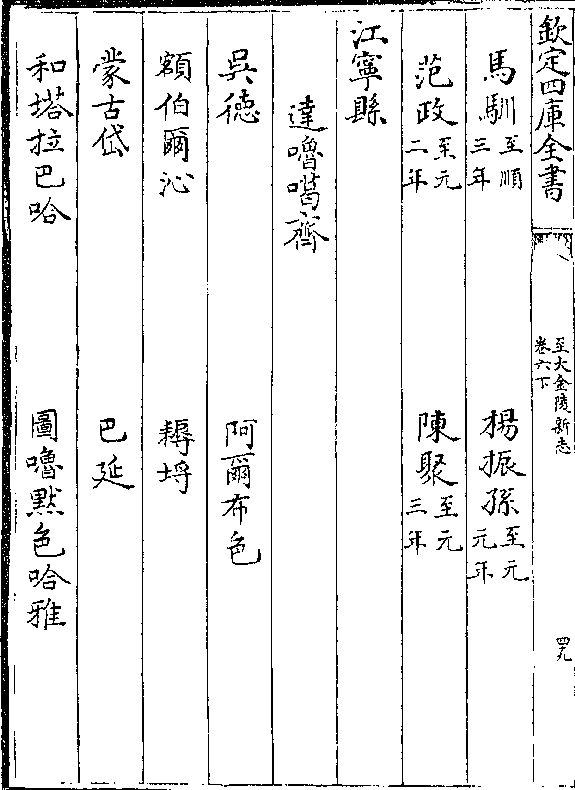 欽定四庫全書
至大金陵新志
卷六下
四九
馬馴至順三年 楊振孫至元元年
范政至元二年 陳聚至元三年
江寧縣
達嚕噶齊
吳德 阿爾布色
額伯爾沁 耨埒
蒙古岱 巴延
和塔拉巴哈 圖嚕默色哈雅